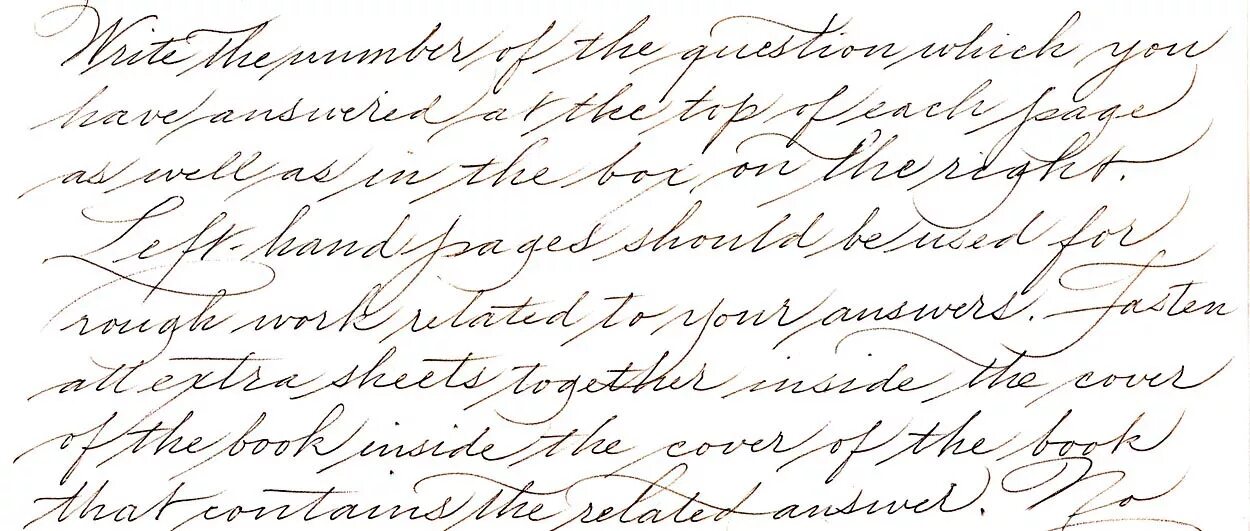 Write the number of the question which you
have answered at the top of each page
as well as in the box on the right.
Left-hand pages should be used for
rough work related to your answers. Fasten
all extra sheets together inside the cover
of the book inside the cover of the book
that contains the related answer. No